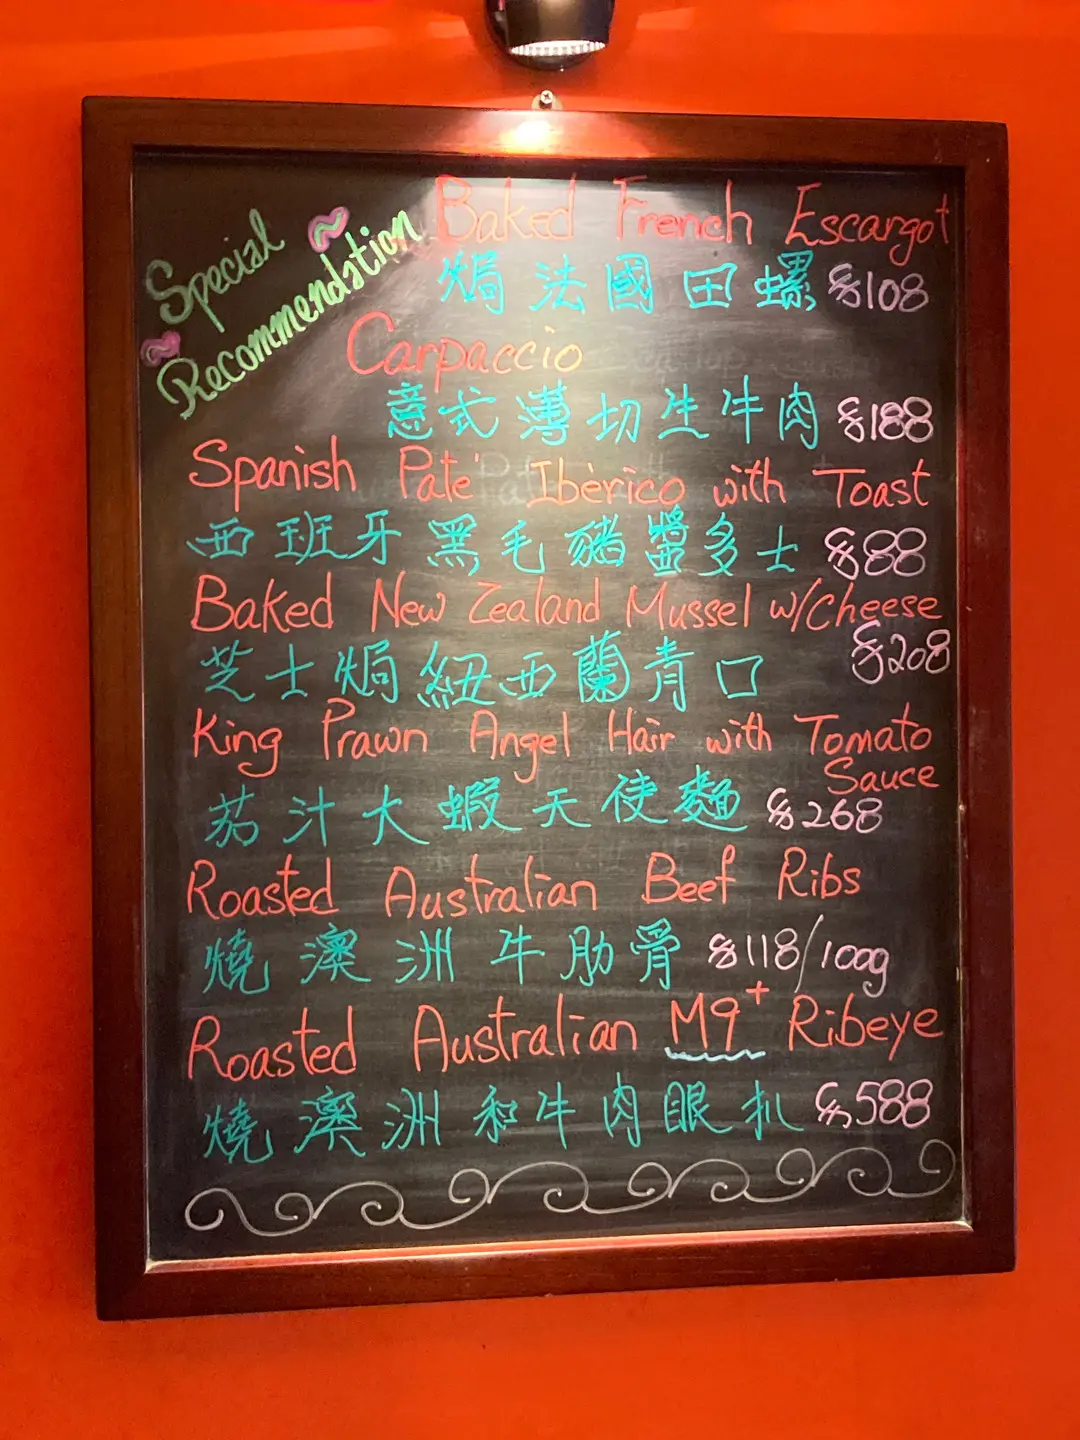 Special
Recommendation
Baked French Escargot
焗法國田螺 $108
Carpaccio
意式薄切生牛肉 $188
Spanish Pate' Iberico with Toast
西班牙黑毛豬醬多士 $88
Baked New Zealand Mussel w/Cheese
芝士焗紐西蘭青口 $208
King Prawn Angel Hair with Tomato
Sauce
茄汁大蝦天使麵 $268
Roasted Australian Beef Ribs
燒澳洲牛肋骨 $118/100g
Roasted Australian M9+ Ribeye
燒澳洲和牛肉眼扒 $588